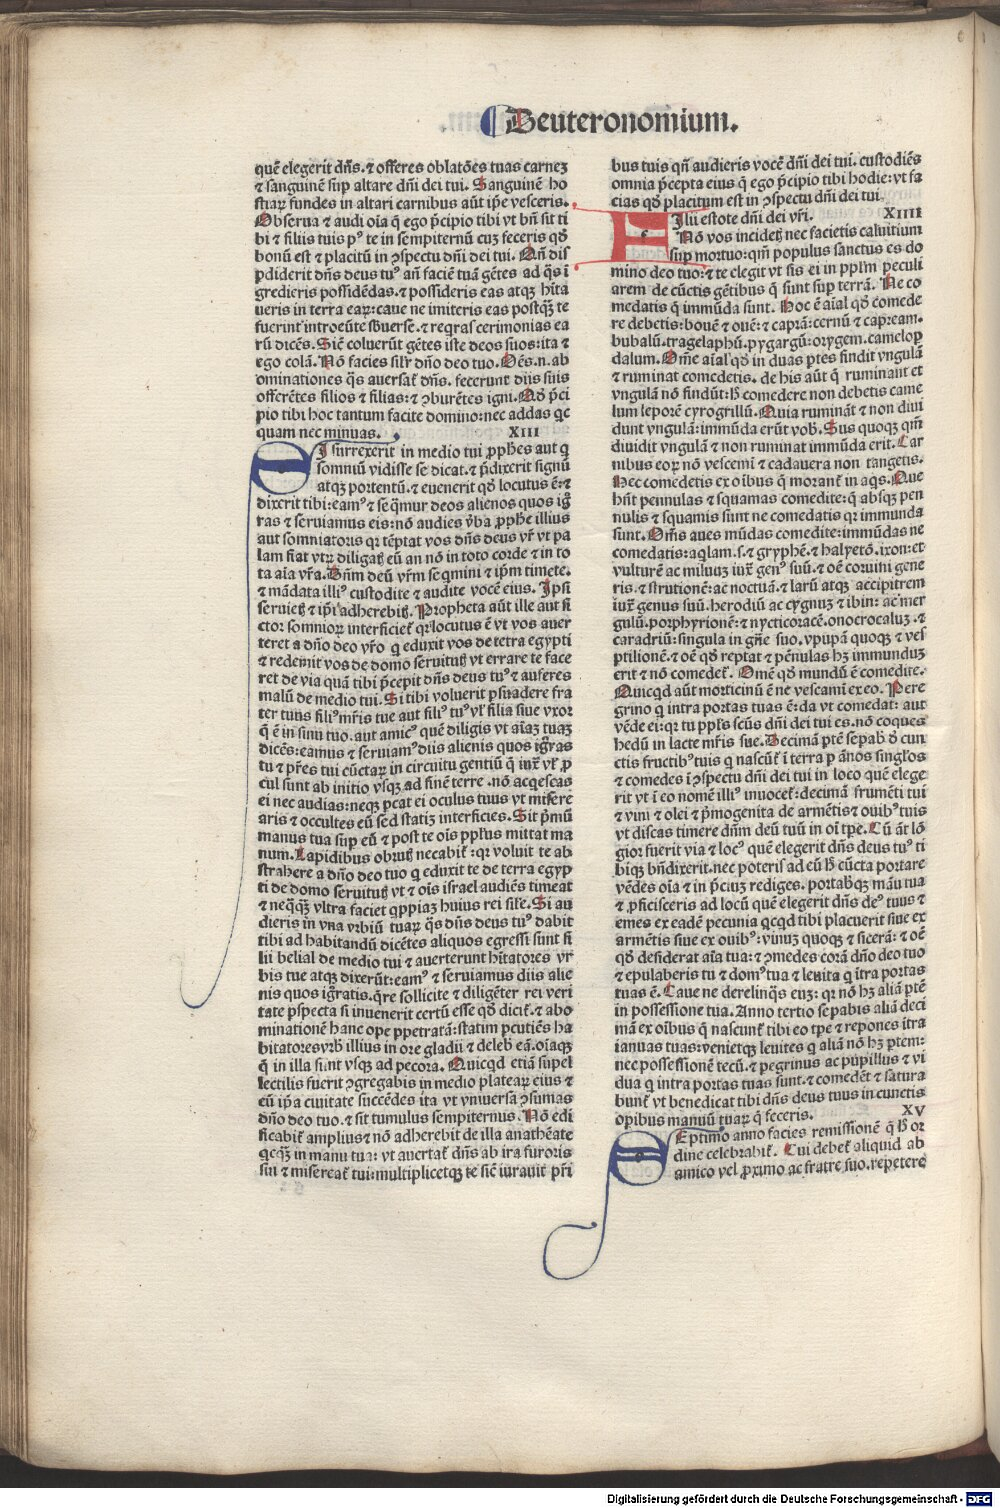 Deuteronomium.
quē elegerit dn̄s. ⁊ offeres oblatōes tuas carneʒ
⁊ sanguinē sup altare dn̄i dei tui. Sanguinē ho
stiaꝝ fundes in altari carnibus aūt ip̄e vesceris.
Obserua ⁊ audi oīa q̄ ego p̄cipio tibi vt bn̄ sit ti
bi ⁊ filiis tuis pꝰ te in sempiternū cuʒ feceris qđ
bonū est ⁊ placitū in ꝯspectu dn̄i dei tui. Qn̄ dis
ꝑdiderit dn̄s deus tuꝰ an̄ faciē tuā gētes ad q̄s ī
gredieris possidēdas. ⁊ possideris eas atqʒ hītа
ueris in terra eaꝝ: caue ne imiteris eas postq̄ʒ te
fuerint introeūte sb̄uerse. ⁊ reqras cerimonias ea
rū dicēs. Sic̄ coluerūt gētes iste deos suos: ita ⁊
ego colā. Nō facies silr̄ dn̄o deo tuo. Oēs. n. ab
ominationes q̄s auersaꞇ dn̄s. fecerunt diis suis
offerētes filios ⁊ filias: ⁊ ꝯburētes igni. Qđ p̄ci
pio tibi hoc tantum facite domino: nec addas qc̄
quam nec minuas. XIII
SI surrexerit in medio tui ꝓph̄es aut q
somniū vidisse se dicat. ⁊ p̄dixerit signū
atqʒ portentū. ⁊ euenerit qđ locutus ē: ⁊
dixerit tibi: eamꝰ ⁊ seq̄mur deos alienos quos iḡ
ras ⁊ seruiamus eis: nō audies v̄ba ꝓph̄e illius
aut somniatoris qꝛ tēptat vos dn̄s deus vr̄ vt pa
lam fiat vtꝝ diligaꞇ eū an nō in toto corde ⁊ in to
ta aīa vr̄a. Dn̄m deū vr̄m seq̄mini ⁊ ip̄m timete.
⁊ mādata illiꝰ custodite ⁊ audite vocē eius. Ipsi
seruieꞇ ⁊ ip̄i adherebiꞇ. Propheta aūt ille aut fi
ctor somnioꝝ interficieꞇ qꝛ locutus ē vt vos auer
teret a dn̄o deo vr̄o q eduxit vos de terra egypti
⁊ redemit vos de domo seruituꞇ vt errare te face
ret de via quā tibi p̄cepit dn̄s deus tuꝰ ⁊ auferes
malū de medio tui. Si tibi voluerit ꝑsuadere fra
ter tuus filiꝰ mr̄is tue aut filiꝰ tuꝰ vl̓ filia siue vxor
q̄ ē in sinu tuo. aut amicꝰ quē diligis vt aīaʒ tuaʒ
dicēs: eamus ⁊ seruiamꝰ diis alienis quos iḡras
tu ⁊ pr̄es tui cūctaꝝ in circuitu gentiū q̄ iuxͣ vl̓ ꝓ
cul sunt ab initio vsqʒ ad finē terre. nō acqescas
ei nec audias: neqʒ ꝑcat ei oculus tuus vt misere
aris ⁊ occultes eū sed statiʒ interficies. Sit p̄mū
manus tua sup eū ⁊ post te oīs pplūs mittat ma
num. Lapidibus obruꞇ necabiꞇ: qꝛ voluit te ab
strahere a dn̄o deo tuo q eduxit te de terra egyp
ti de domo seruituꞇ vt ⁊ oīs israel audiēs timeat
⁊ neq̄qʒ vltra faciet qppiaʒ huius rei sil̓e. Si au
dieris in vna vrbiū tuaꝝ q̄s dn̄s deus tuꝰ dabit
tibi ad habitandū dicētes aliquos egressi sunt fi
lii belial de medio tui ⁊ auerterunt hītatores vr
bis tue atqʒ dixerūt: eamꝰ ⁊ seruiamus diis alie
nis quos iḡratis. q̄re sollicite ⁊ diligēter rei veri
tate ꝑspecta si inuenerit certū esse qđ diciꞇ. ⁊ abo
minationē hanc ope ꝑpetratā: statim ꝑcuties ha
bitatores vrb̓ illius in ore gladii ⁊ deleb̓ eā. oīaqʒ
q̄ in illa sunt vsqʒ ad pecora. Quicqd etiā supel
lectilis fuerit ꝯgregabis in medio plateaꝝ eius ⁊
eū ip̄a ciuitate succēdes ita vt vniuersa ꝯsumas
dn̄o deo tuo. ⁊ sit tumulus sempiternus. Nō edi
ficabiꞇ amplius ⁊ nō adherebit de illa anathēate
qcqʒ in manu tua: vt auertaꞇ dn̄s ab ira furoris
sui ⁊ misereaꞇ tui: multiplicetqʒ te sic̄ iurauit pr̄i
bus tuis qn̄ audieris vocē dn̄i dei tui. custodiēs
omnia p̄cepta eius q̄ ego p̄cipio tibi hodie: vt fa
cias qđ placitum est in ꝯspectu dn̄i dei tui.
FIlii estote dn̄i dei vr̄i. XIIII
Nō vos incideꞇ nec facietis caluitium
sup mortuo: qm̄ populus sanctus es do
mino deo tuo: ⁊ te elegit vt sis ei in pplm̄ peculi
arem de cūctis gētibus q̄ sunt sup terrā. Ne co
medatis q̄ immūda sunt. Hoc ē aīal qđ comede
re debetis: bouē ⁊ ouē: ⁊ caprā: ceruū ⁊ capream.
bubalū. tragelaphū. pygargū: orygem. camelop
dalum. Om̄e aīal qđ in duas ꝑtes findit vngulā
⁊ ruminat comedetis. de his aūt q̄ ruminant et
vngulā nō findūt: h̄ comedere non debetis came
lum leporē cyrogrillū. Quia rumināt ⁊ non diui
dunt vngulā: immūda erūt vob̓. Sus quoqʒ qm̄
diuidit vngulā ⁊ non ruminat immūda erit. Car
nibus eoꝝ nō vescemī ⁊ cadauera non tangetis.
Hec comedetis ex oībus q̄ moranꞇ in aqs. Que
hn̄t pennulas ⁊ squamas comedite: q̄ absqʒ pen
nulis ⁊ squamis sunt ne comedatis qꝛ immunda
sunt. Om̄s aues mūdas comedite: immūdas ne
comedatis: aqlam. s. ⁊ gryphē. ⁊ halyetō. ixon: et
vulturē ac miluuʒ iuxͣ genꝰ suū. ⁊ oē coruini gene
ris. ⁊ strutionē: ac noctuā. ⁊ larū atqʒ accipitrem
iuxͣ genus suū. herodiū ac cygnuʒ ⁊ ibin: ac mer
gulū. porphyrionē: ⁊ nycticoracē. onocrocaluʒ. ⁊
caradriū: singula in gn̄e suo. vpupā quoqʒ ⁊ ves
ꝑtilionē. ⁊ oē qđ reptat ⁊ pēnulas hʒ immunduʒ
erit ⁊ nō comedeꞇ. Omē qđ mundū ē comedite.
Quicqd aūt morticinū ē ne vescamī ex eo. Pere
grino q intra portas tuas ē: da vt comedat: aut
vēde ei: qꝛ tu pplūs sc̄us dn̄i dei tui es. nō coques
hedū in lacte mr̄is sue. Decimā ꝑtē sepab̓ đ cun
ctis fructibꝰ tuis q nascūꞇ ī terra ꝑ ānos sing̓los
⁊ comedes ī ꝯspectu dn̄i dei tui in loco quē elege
rit vt ī eo nomē illiꝰ inuoceꞇ: decimā frumēti tui
⁊ vini ⁊ olei ⁊ p̄mogenita de armētis ⁊ ouibꝰ tuis
vt discas timere dn̄m deū tuū in oī tp̄e. Cū āt lō
gior fuerit via ⁊ locꝰ quē elegerit dn̄s deus tuꝰ ti
biqʒ bn̄dixerit. nec poteris ad eū h̄ cūcta portare
vēdes oīa ⁊ in p̄ciuʒ rediges. portabqʒ manu tua
⁊ ꝓficisceris ad locū quē elegerit dn̄s deꝰ tuus ⁊
emes ex eadē pecunia qcqd tibi placuerit siue ex
armētis siue ex ouibꝰ: vinuʒ quoqʒ ⁊ sicerā: ⁊ oē
qđ desiderat aīa tua: ⁊ ꝯmedes corā dn̄o deo tuo
⁊ epulaberis tu ⁊ domꝰ tua ⁊ leuita q ītra portas
tuas ē. Caue ne derelinq̄s euʒ: qꝛ nō hʒ aliā ꝑtē
in possessione tua. Anno tertio sepabis aliā deci
mā ex oībus q̄ nascunꞇ tibi eo tp̄e ⁊ repones ītra
ianuas tuas: venietqʒ leuites q aliā nō hʒ ꝑtem:
nec possessionē tecū. ⁊ ꝑegrinus ac pupillus ⁊ vi
dua q intra portas tuas sunt. ⁊ comedēt ⁊ satura
bunꞇ vt benedicat tibi dn̄s deus tuus in cunctis
opibus manuū tuaꝝ q̄ feceris. XV
SEptimo anno facies remissionē q̄ h̄ or
dine celebrabiꞇ. Cui debeꞇ aliquid ab
amico vel ꝓximo ac fratre suo. repetere
Digitalisierung gefördert durch die Deutsche Forschungsgemeinschaft - DFG